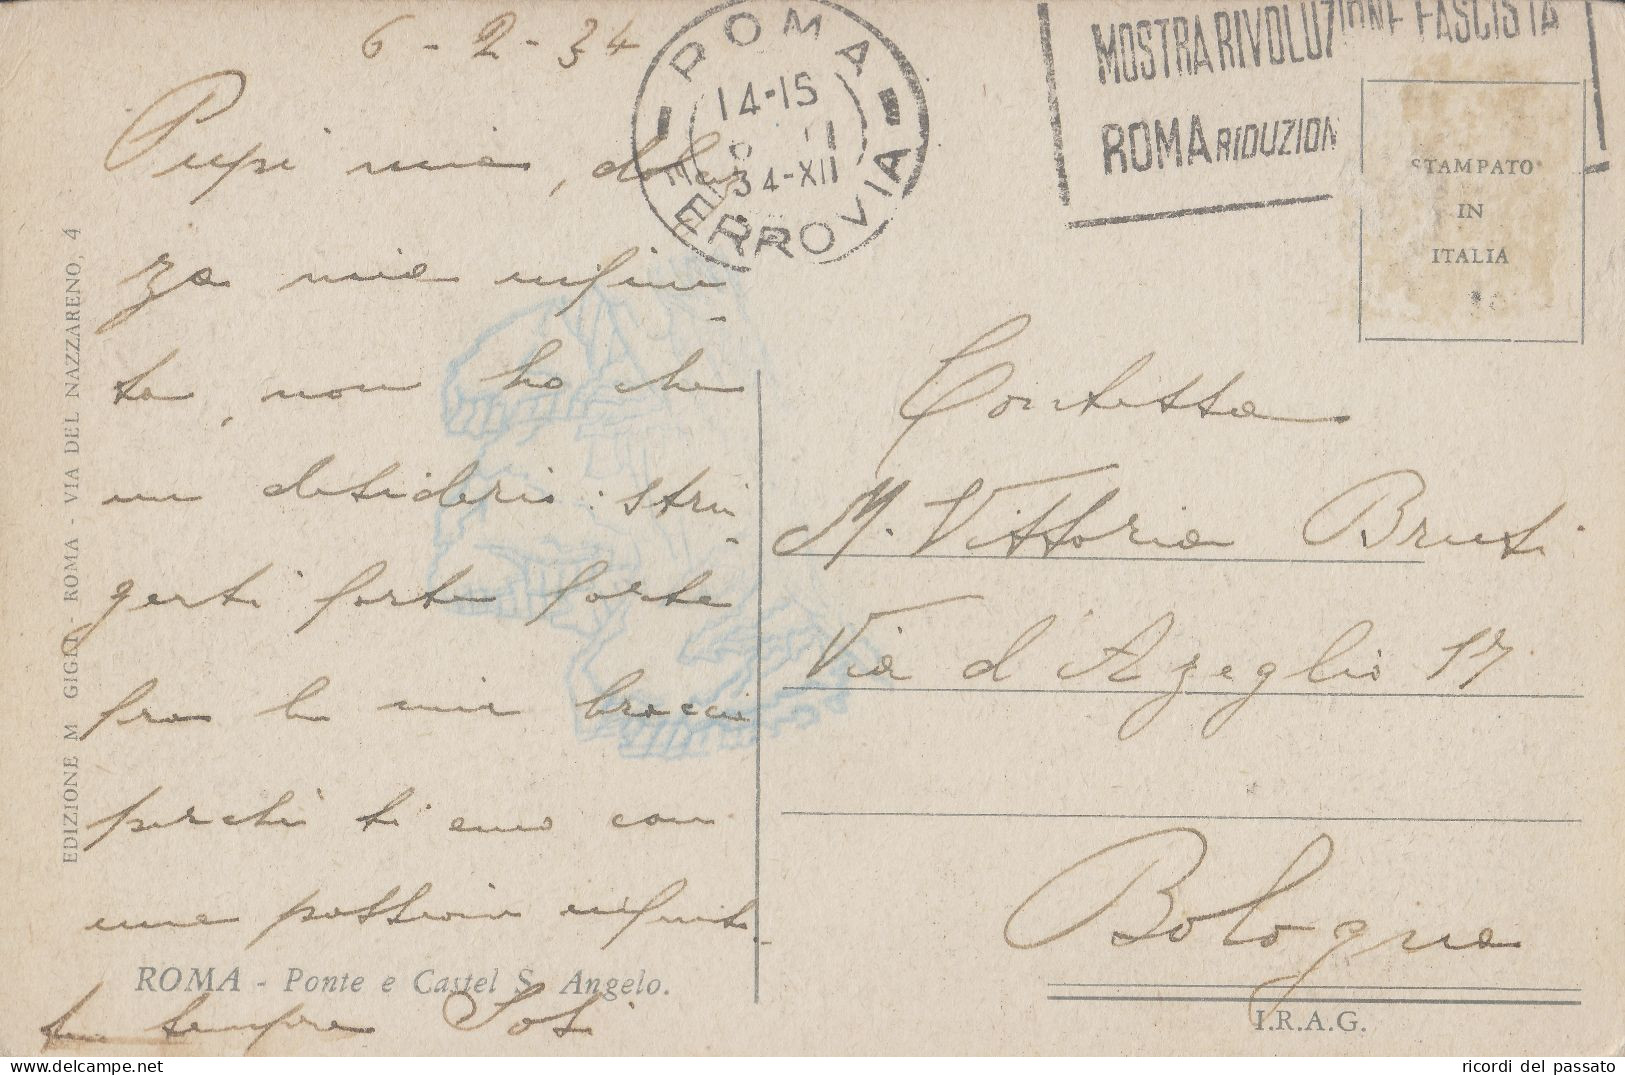 6 - 2 - 34
ROMA
FERROVIA
14-15
34-XII
MOSTRA RIVOLUZIONE FASCISTA
ROMA RIDUZION
STAMPATO
IN
ITALIA
EDIZIONE M GIGLI - ROMA - VIA DEL NAZZARENO, 4
Pupi mia, dolcez
za mia infini-
ta, non ho che
un desiderio: strin-
gerti forte forte
fra le mie braccia
perchè ti amo con
una passione infinita.
tuo sempre
Contessa
M. Vittoria Bruti
Via d'Azeglio 17
Bologna
ROMA - Ponte e Castel S. Angelo.
I.R.A.G.
ricordi del passato
delcampe.net